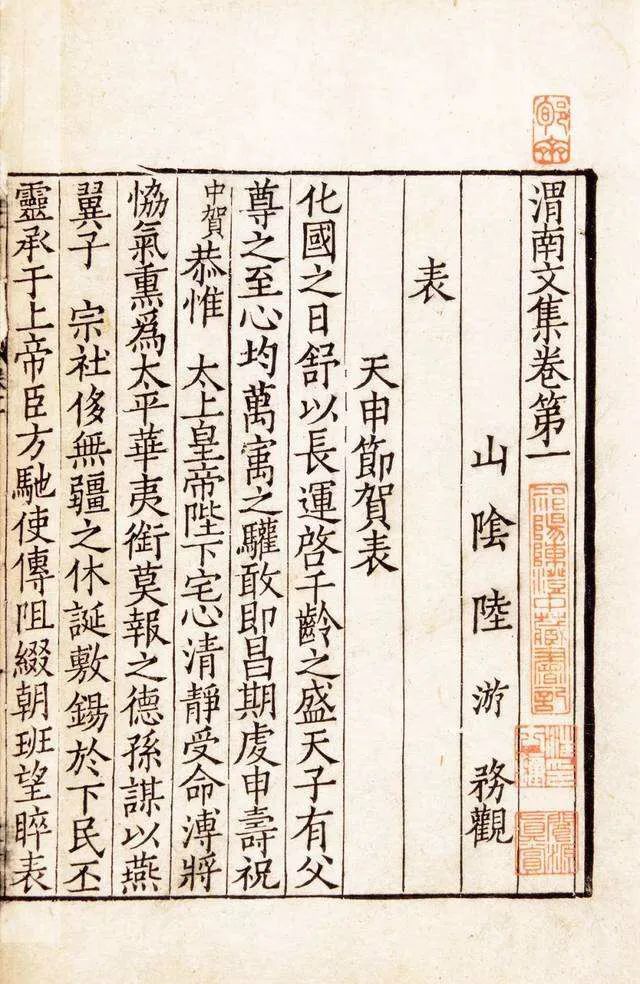 郇齋
渭南文集卷第一
祁陽陳澄中藏書記
汪印士鐘
閬源真賞
山陰陸 游 務觀
表
天申節賀表
化國之日舒以長運啓千齡之盛天子有父
尊之至心均萬寓之驩敢即昌期虔申壽祝
中賀恭惟 太上皇帝陛下宅心清靜受命溥將
恊氣熏爲太平華夷銜莫報之德孫謀以燕
翼子 宗社侈無疆之休誕敷錫於下民丕
靈承于上帝臣方馳使傳阻綴朝班望睟表